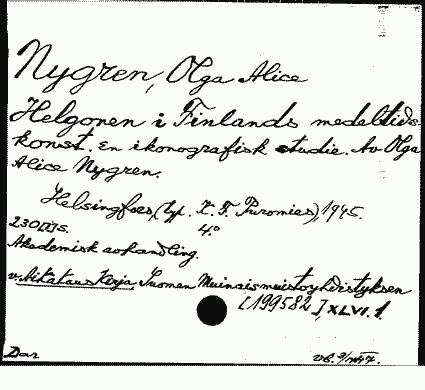 Nygren, Olga Alice
Helgonen i Finlands medeltids
konst. En ikonografisk studie. Av Olga
Alice Nygren.
Helsingfors, (tr. K. F. Puromies), 1945.
4:o
Akademisk avhandling.
v. Aikakauskirja, Suomen Muinaismuistoyhdistyksen
[199582] XLVI. 1.